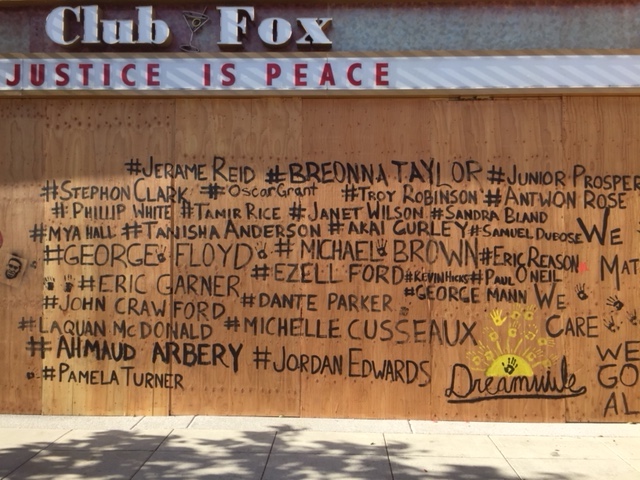 Club Fox
JUSTICE IS PEACE
#JERAME REID #BREONNA TAYLOR #JUNIOR PROSPER
#STEPHON CLARK #OscarGrant #TROY ROBINSON #ANTWON ROSE
#PHILLIP WHITE #TAMIR RICE #JANET WILSON #SANDRA BLAND
#MYA HALL #TANISHA ANDERSON #AKAI GURLEY #SAMUEL DUBOSE WE
#GEORGE FLOYD #MICHAEL BROWN #ERIC REASON MAT
#ERIC GARNER #EZELL FORD #KEVIN HICKS #PAUL O'NEIL
#GEORGE MANN WE
#JOHN CRAWFORD #DANTE PARKER
#LAQUAN McDONALD #MICHELLE CUSSEAUX CARE
#AHMAUD ARBERY #JORDAN EDWARDS WE
#PAMELA TURNER Dreamville GO
AL